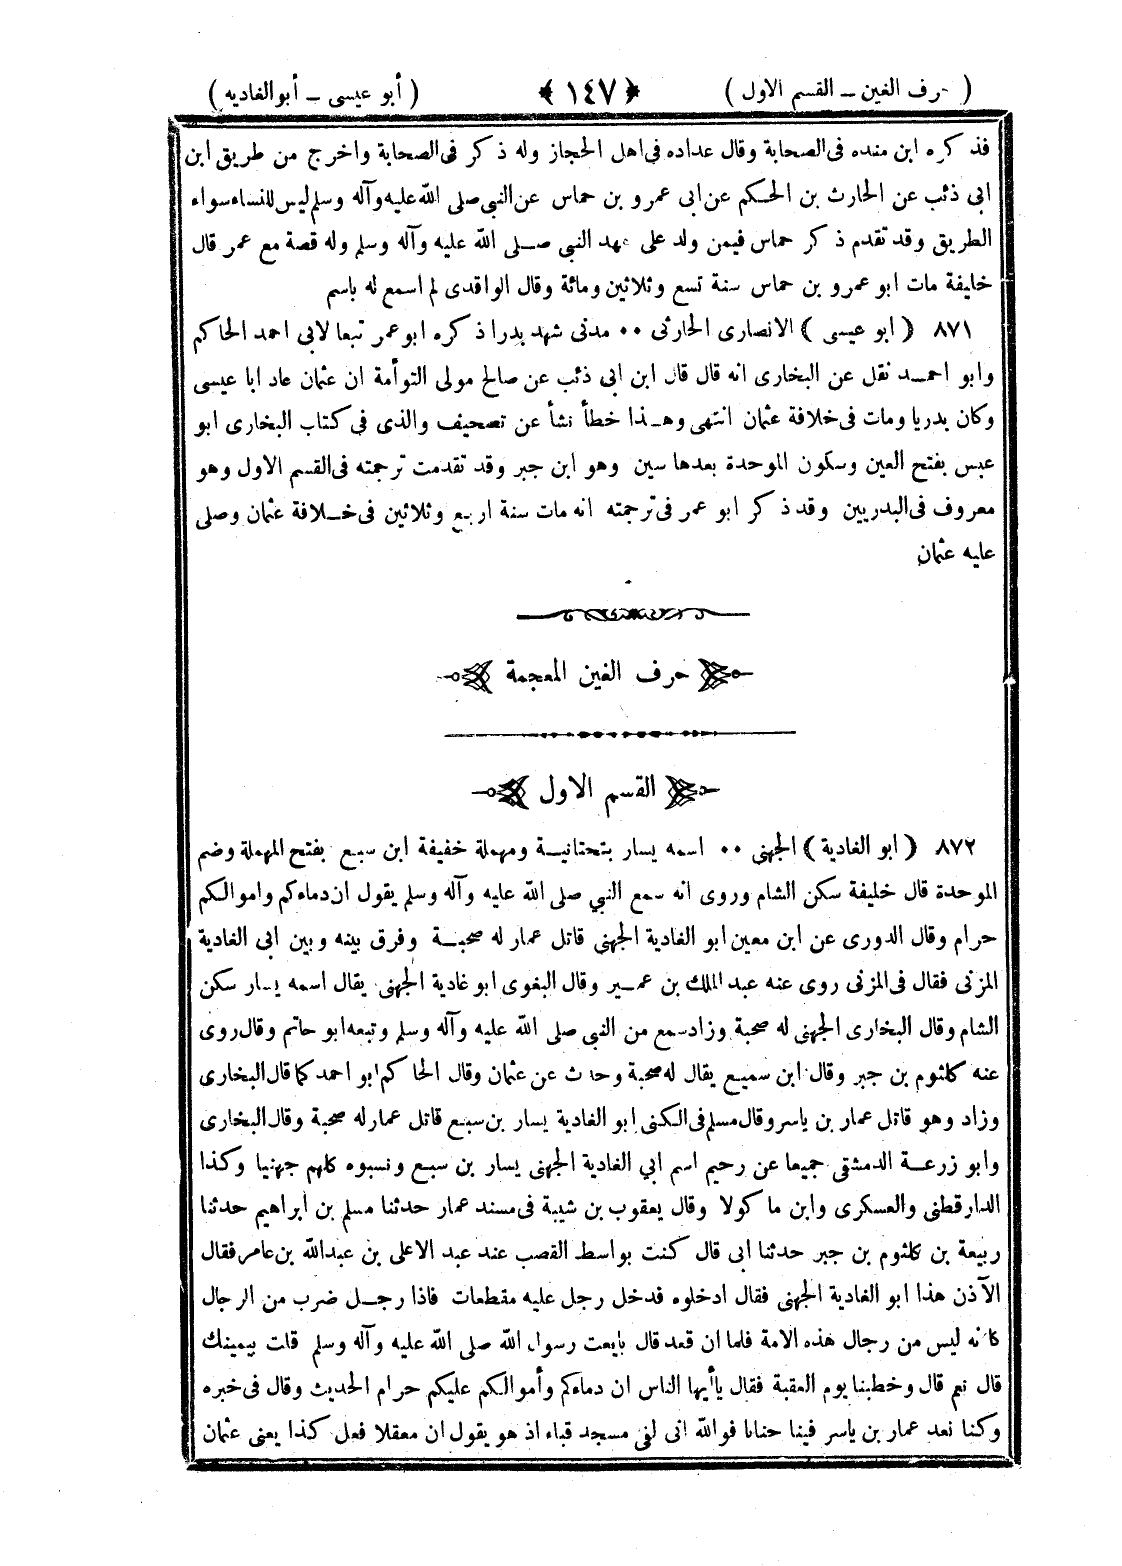 ( حرف الغين ــ القسم الاول ) ﴿ ١٤٧ ﴾ ( أبو عيسى ــ أبو الغاديه )
فذ كره ابن منده فى الصحابة وقال عداده فى اهل الحجاز وله ذ كر فى الصحابة واخرج من طريق ابن
ابى ذئب عن الحارث بن الحكم عن ابى عمرو بن حماس عن النبى صلى الله عليه وآله وسلم ليس للنساء سواء
الطريق وقد تقدم ذ كر حماس فيمن ولد على عهد النبي صلى الله عليه وآله وسلم وله قصة مع عمر قال
خليفة مات ابو عمرو بن حماس سنة تسع وثلاثين ومائة وقال الواقدى لم اسمع له باسم
٨٧١ ( ابو عيسى ) الانصارى الحارثى ٠٠ مدنى شهد بدرا ذ كره ابو عمر تبعا لابى احمد الحاكم
وابو احمد نقل عن البخارى انه قال قال ابن ابى ذئب عن صالح مولى التوأمة ان عثمان عاد ابا عيسى
وكان بدريا ومات فى خلافة عثمان انتهى وهذا خطأ نشأ عن تصحيف والذى فى كتاب البخارى ابو
عبس بفتح العين وسكون الموحدة بعدها سين وهو ابن جبر وقد تقدمت ترجمته فى القسم الاول وهو
معروف فى البدريين وقد ذ كر ابو عمر فى ترجمته انه مات سنة اربع وثلاثين فى خلافة عثمان وصلى
عليه عثمان
حرف الغين المعجمة
القسم الاول
٨٧٢ ( ابو الغادية ) الجهنى ٠٠ اسمه يسار بتحتانية ومهملة خفيفة ابن سبع بفتح المهملة وضم
الموحدة قال خليفة سكن الشام وروى انه سمع النبي صلى الله عليه وآله وسلم يقول ان دماءكم واموالكم
حرام وقال الدورى عن ابن معين ابو الغادية الجهنى قاتل عمار له صحبة وفرق بينه وبين ابى الغادية
المزنى فقال فى المزنى روى عنه عبد الملك بن عمير وقال البغوى ابو غادية الجهنى يقال اسمه يسار سكن
الشام وقال البخارى الجهنى له صحبة وزاد سمع من النبى صلى الله عليه وآله وسلم وتبعه ابو حاتم وقال روى
عنه كلثوم بن جبر وقال ابن سميع يقال له صحبة وحدث عن عثمان وقال الحاكم ابو احمد كما قال البخارى
وزاد وهو قاتل عمار بن ياسر وقال مسلم فى الكنى ابو الغادية يسار بن سبع قاتل عمار له صحبة وقال البخارى
وابو زرعة الدمشقى جميعا عن رحيم اسم ابي الغادية الجهنى يسار بن سبع ونسبوه كلهم جهنيا وكذا
الدارقطنى والعسكرى وابن ما كولا وقال يعقوب بن شيبة فى مسند عمار حدثنا مسلم بن ابراهيم حدثنا
ربيعة بن كلثوم بن جبر حدثنا ابى قال كنت بواسط القصب عند عبد الاعلى بن عبدالله بن عامر فقال
الآذن هذا ابو الغادية الجهنى فقال ادخلوه فدخل رجل عليه مقطعات فاذا رجل ضرب من الرجال
كانه ليس من رجال هذه الامة فلما ان قعد قال بايعت رسول الله صلى الله عليه وآله وسلم قلت بيمينك
قال نعم قال وخطبنا يوم العقبة فقال ياأيها الناس ان دماءكم وأموالكم عليكم حرام الحديث وقال فى خبره
وكنا نعد عمار بن ياسر فينا حنانا فوالله انى لفى مسجد قباء اذ هو يقول ان معقلا فعل كذا يعنى عثمان